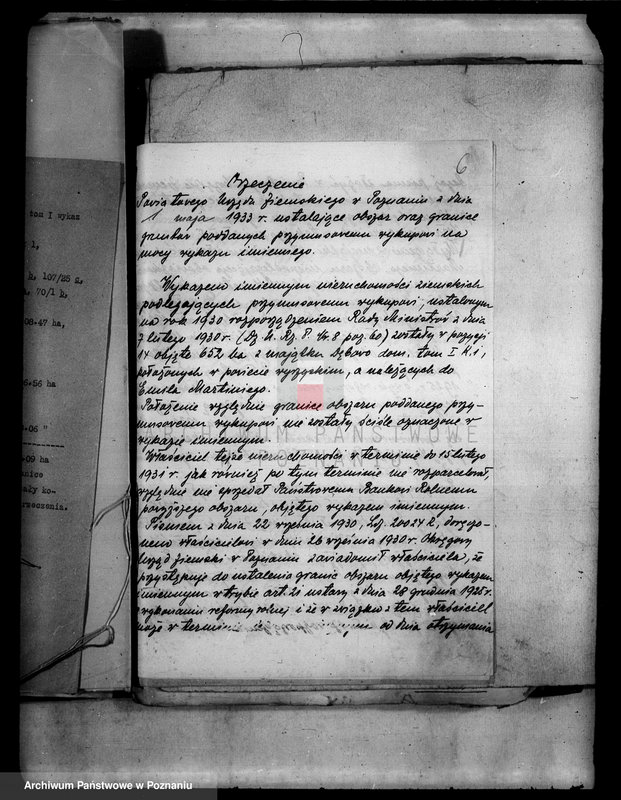 6
Orzeczenie
Powiatowego Urzędu Ziemskiego w Poznaniu z dnia
1 maja 1933 r. ustalające obszar oraz granice
gruntów poddanych przymusowemu wykupowi na
mocy wykazu imiennego.
Wykazem imiennym nieruchomości ziemskich
podlegających przymusowemu wykupowi, ustalonym
na rok 1930 rozporządzeniem Rady Ministrów z dnia
7 lutego 1930 r. (Dz. U. Rz. P. Nr. 8 poz. 60) zostały w pozycji
14 objęte 652 ha z majątku Dębowo dom. tom I k. 1,
położonych w powiecie wyrzyskim, a należących do
Emila Martiniego.
Położenie względnie granice obszaru poddanego przy-
musowemu wykupowi nie zostały ściśle oznaczone w
wykazie imiennym.
Właściciel tejże nieruchomości w terminie do 15 lutego
1931 r. jak również po tym terminie nie rozparcelował,
względnie nie sprzedał Państwowemu Bankowi Rolnemu
powyższego obszaru, objętego wykazem imiennym.
Pismem z dnia 22 września 1930, L.dz. 20024 R, doręczo-
nem właścicielowi w dniu 26 września 1930 r. Okręgowy
Urząd Ziemski w Poznaniu zawiadomił właściciela, że
przystępuje do ustalenia granic obszaru objętego wykazem
imiennym w trybie art. 21 ustawy z dnia 28 grudnia 1925 r.
wykonaniu reformy rolnej i że w związku z tem właściciel
może w terminie od dnia otrzymania
tom I wykaz
1,
k. 107/25 z,
70/1 k,
08.47 ha,
6.56 ha
.06 "
.09 ha
nice
ały ko-
rzeczenia.
ARCHIWUM PAŃSTWOWE
Archiwum Państwowe w Poznaniu